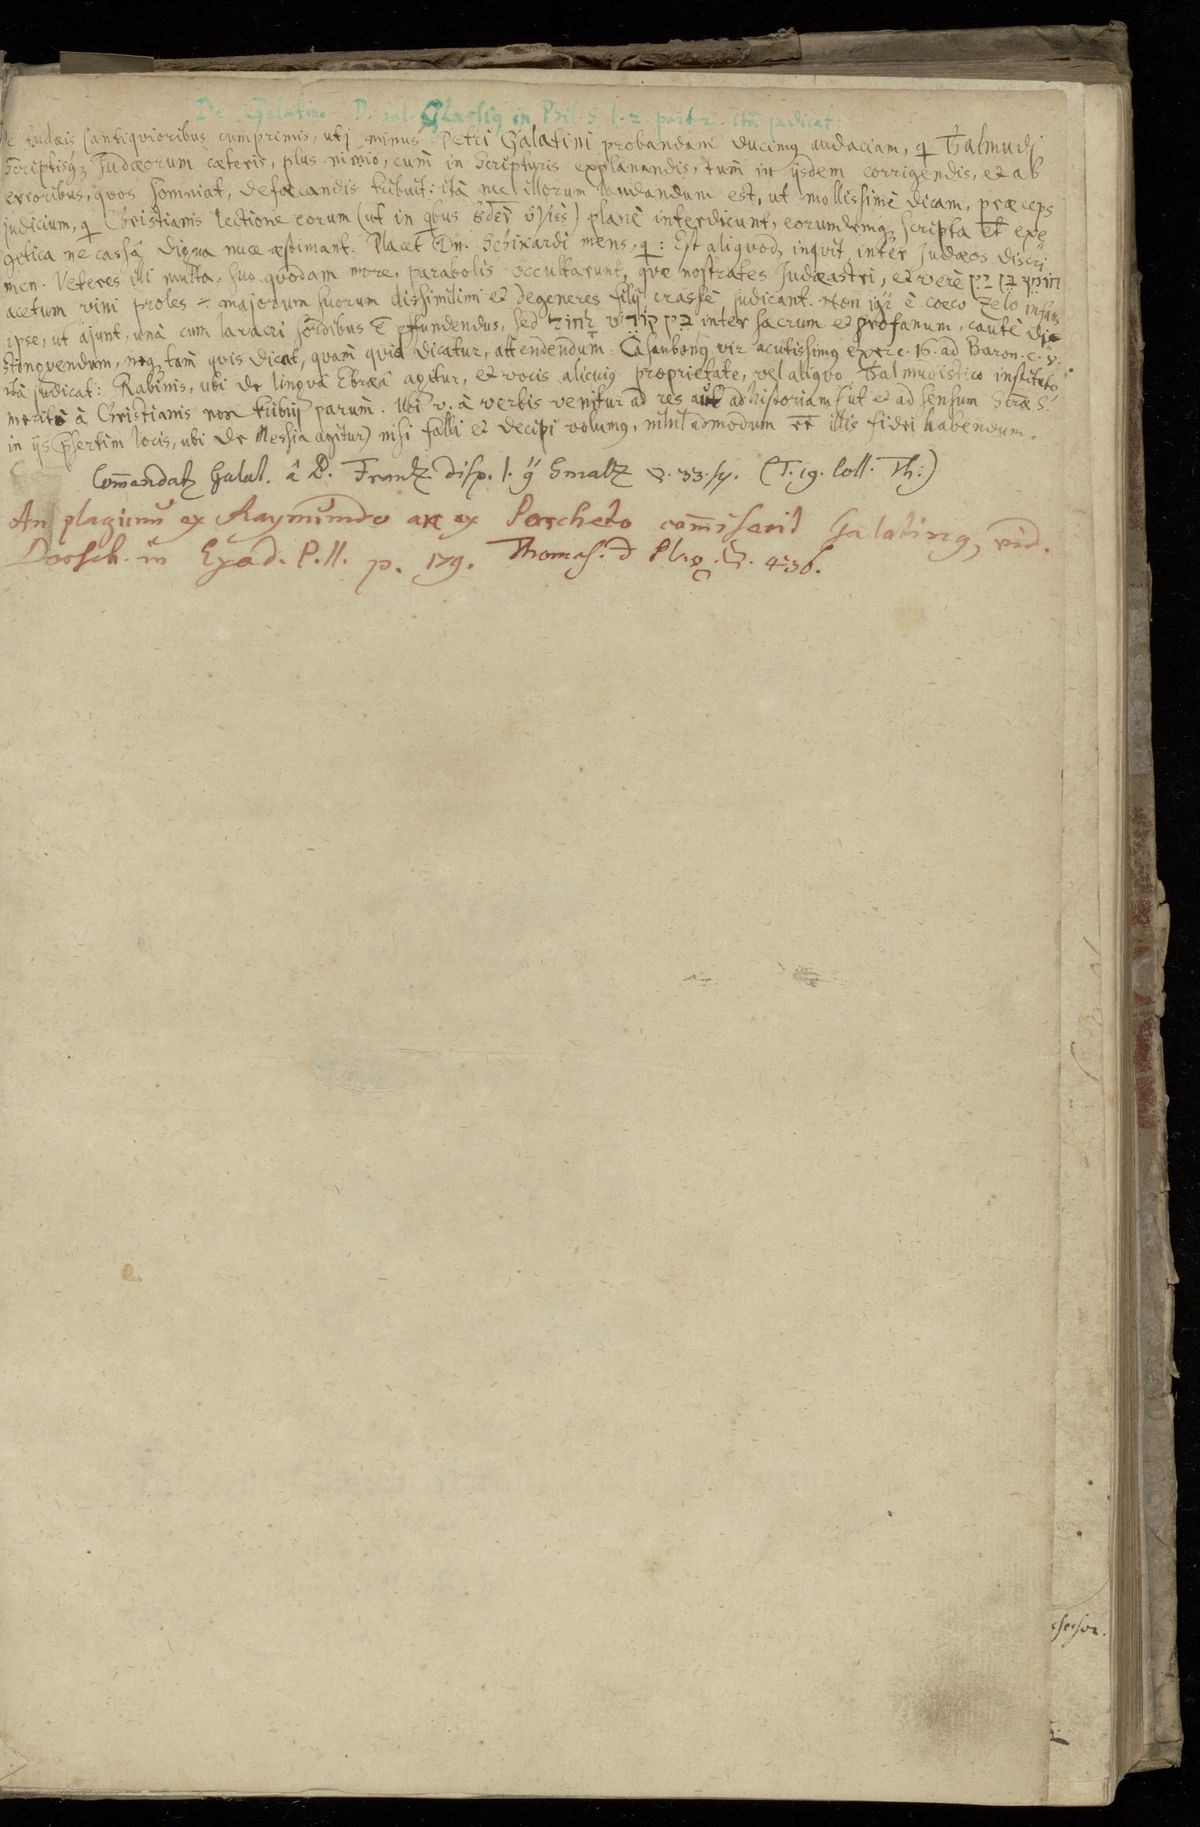 De Galatino D. Sal. Glassig in Phil. S. l. 2. part. 2. ità judicat:
e Judæis (antiqvioribus cumprimis, uti minus Petri Galatini probandam ducimg audaciam, q Talmudi
scriptisq Judæorum cæteris, plus nimio, cùm in Scripturis explanandis, tùm in ijsdem corrigendis, et ab
erroribus, qvos somniat, defœcandis tribuit: ità nec illorum laudandum est, ut mollissimè dicam, præceps
judicium, q Christianis lectione eorum (ut in qbus ὐδὲν ὑγιὲς) planè interdicunt, eorundemq scripta et exe
getica ne cassâ digna nuce æstimant. Placet Dn. Schikardi mens, q: Est aliqvod, inqvit, inter Judæos discri
men. Veteres illi multa, suo qvodam more, parabolis occultarunt, qvæ nostrates Judæastri, et verè חומץ בן יין
acetum vini proles ÷ majorum suorum dissimilimi et degeneres filij, crassè judicant. Non igr è cœco zelo infans
ipse, ut ajunt, unà cum lavacri sordibus ē effundendus, sed בין קודש לחול inter sacrum et profanum, cautè di
stingvendum, neq tàm qvis dicat, qvàm qvid dicatur, attendendum. Casaubong vir acutissimg exerc. 16. ad Baron. c. 8.
ità judicat: Rabinis, ubi de lingvâ Ebræâ agitur, et vocis alicujg proprietate, vel aliqvo Talmudistico instituto
meritò à Christianis non tribuj parùm. Ubi v. à verbis venitur ad res aut ad historiam, ut et ad sensum Scræ S.
in ijs (psertim locis, ubi de Messia agitur) nisi falli et decipi volumg, nihil admodum eē illis fidei habendum.
Com̄endatz Galat. â D. Frantz. disp. 1. Smaltz §. 33. sq. (T. 19. Coll. Th:)
An plagium ex Raymundo an ex Porcheto com̄iserit Galating, vid.
Dorsch. in Exod. P. II. p. 179. Thomas. d Plag. §. 436.